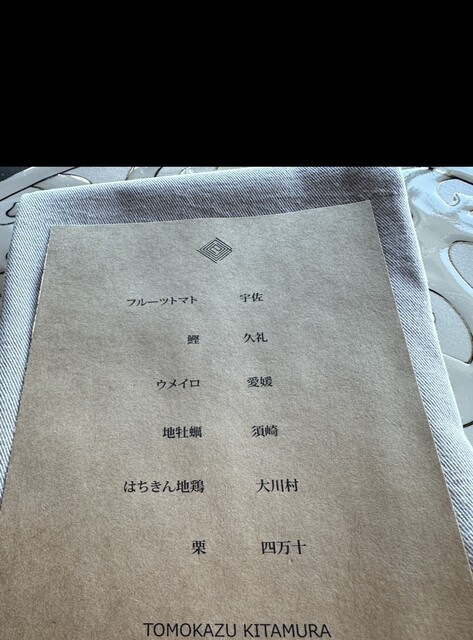 フルーツトマト 宇佐
鰹 久礼
ウメイロ 愛媛
地牡蠣 須崎
はちきん地鶏 大川村
栗 四万十
TOMOKAZU KITAMURA